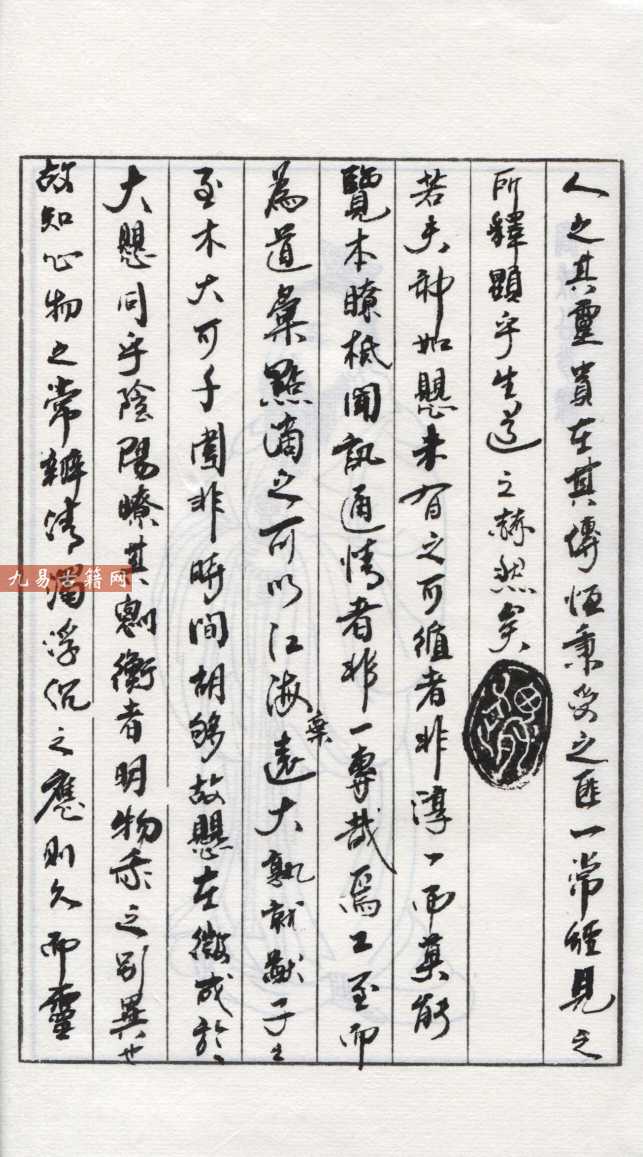 人之其靈貴在其傳恒秉受之匪一常經見之
所釋顯乎生道之赫然矣
若夫神如懸未有之可循者非淳一而莫能
覽本瞭柢聞訊通情者非一專哉焉工至而
為道彙點滴之可以江海棄遠大孰就猷子之
至木大可子圍非時間胡够故懸在微成於
大懸同乎陰陽瞭其劇衡者明物秉之別異也
故知心物之常辨清濁浮沉之應則久而靈
九易古籍网